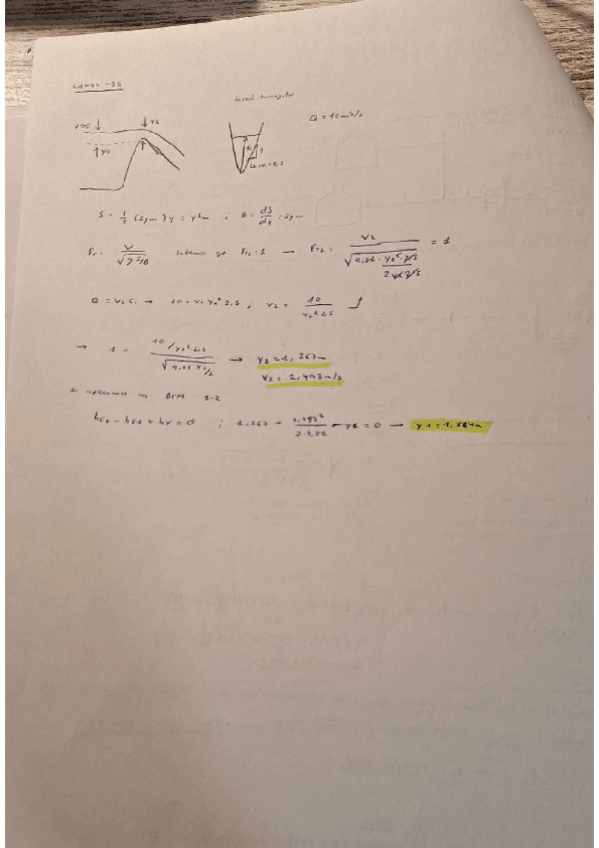 CANAL -33
Sección triangular
Q = 10 m³/s
V=0
Y2
Y1
m=2,5
S = 1/2 (2ym) y = y²m ; B = dS/dy = 2ym
Fr = V/√(g S/B) sabemos que Fr2 = 1 → Fr2 = V2 / = 1
Q = V2 S → 10 = V2 Y2² 2,5 ; V2 = 10/(Y2² 2,5)
→ 1 = (10/Y2² 2,5)/√(9,81 Y2/2) → Y2 = 1,267m
V2 = 2,493 m/s
Si aplicamos BEM 1-2
hE2 - hE1 + hf = 0 ; 1,267 + 2,493²/(2·9,81) - Y1 = 0 → Y1 = 1,584m